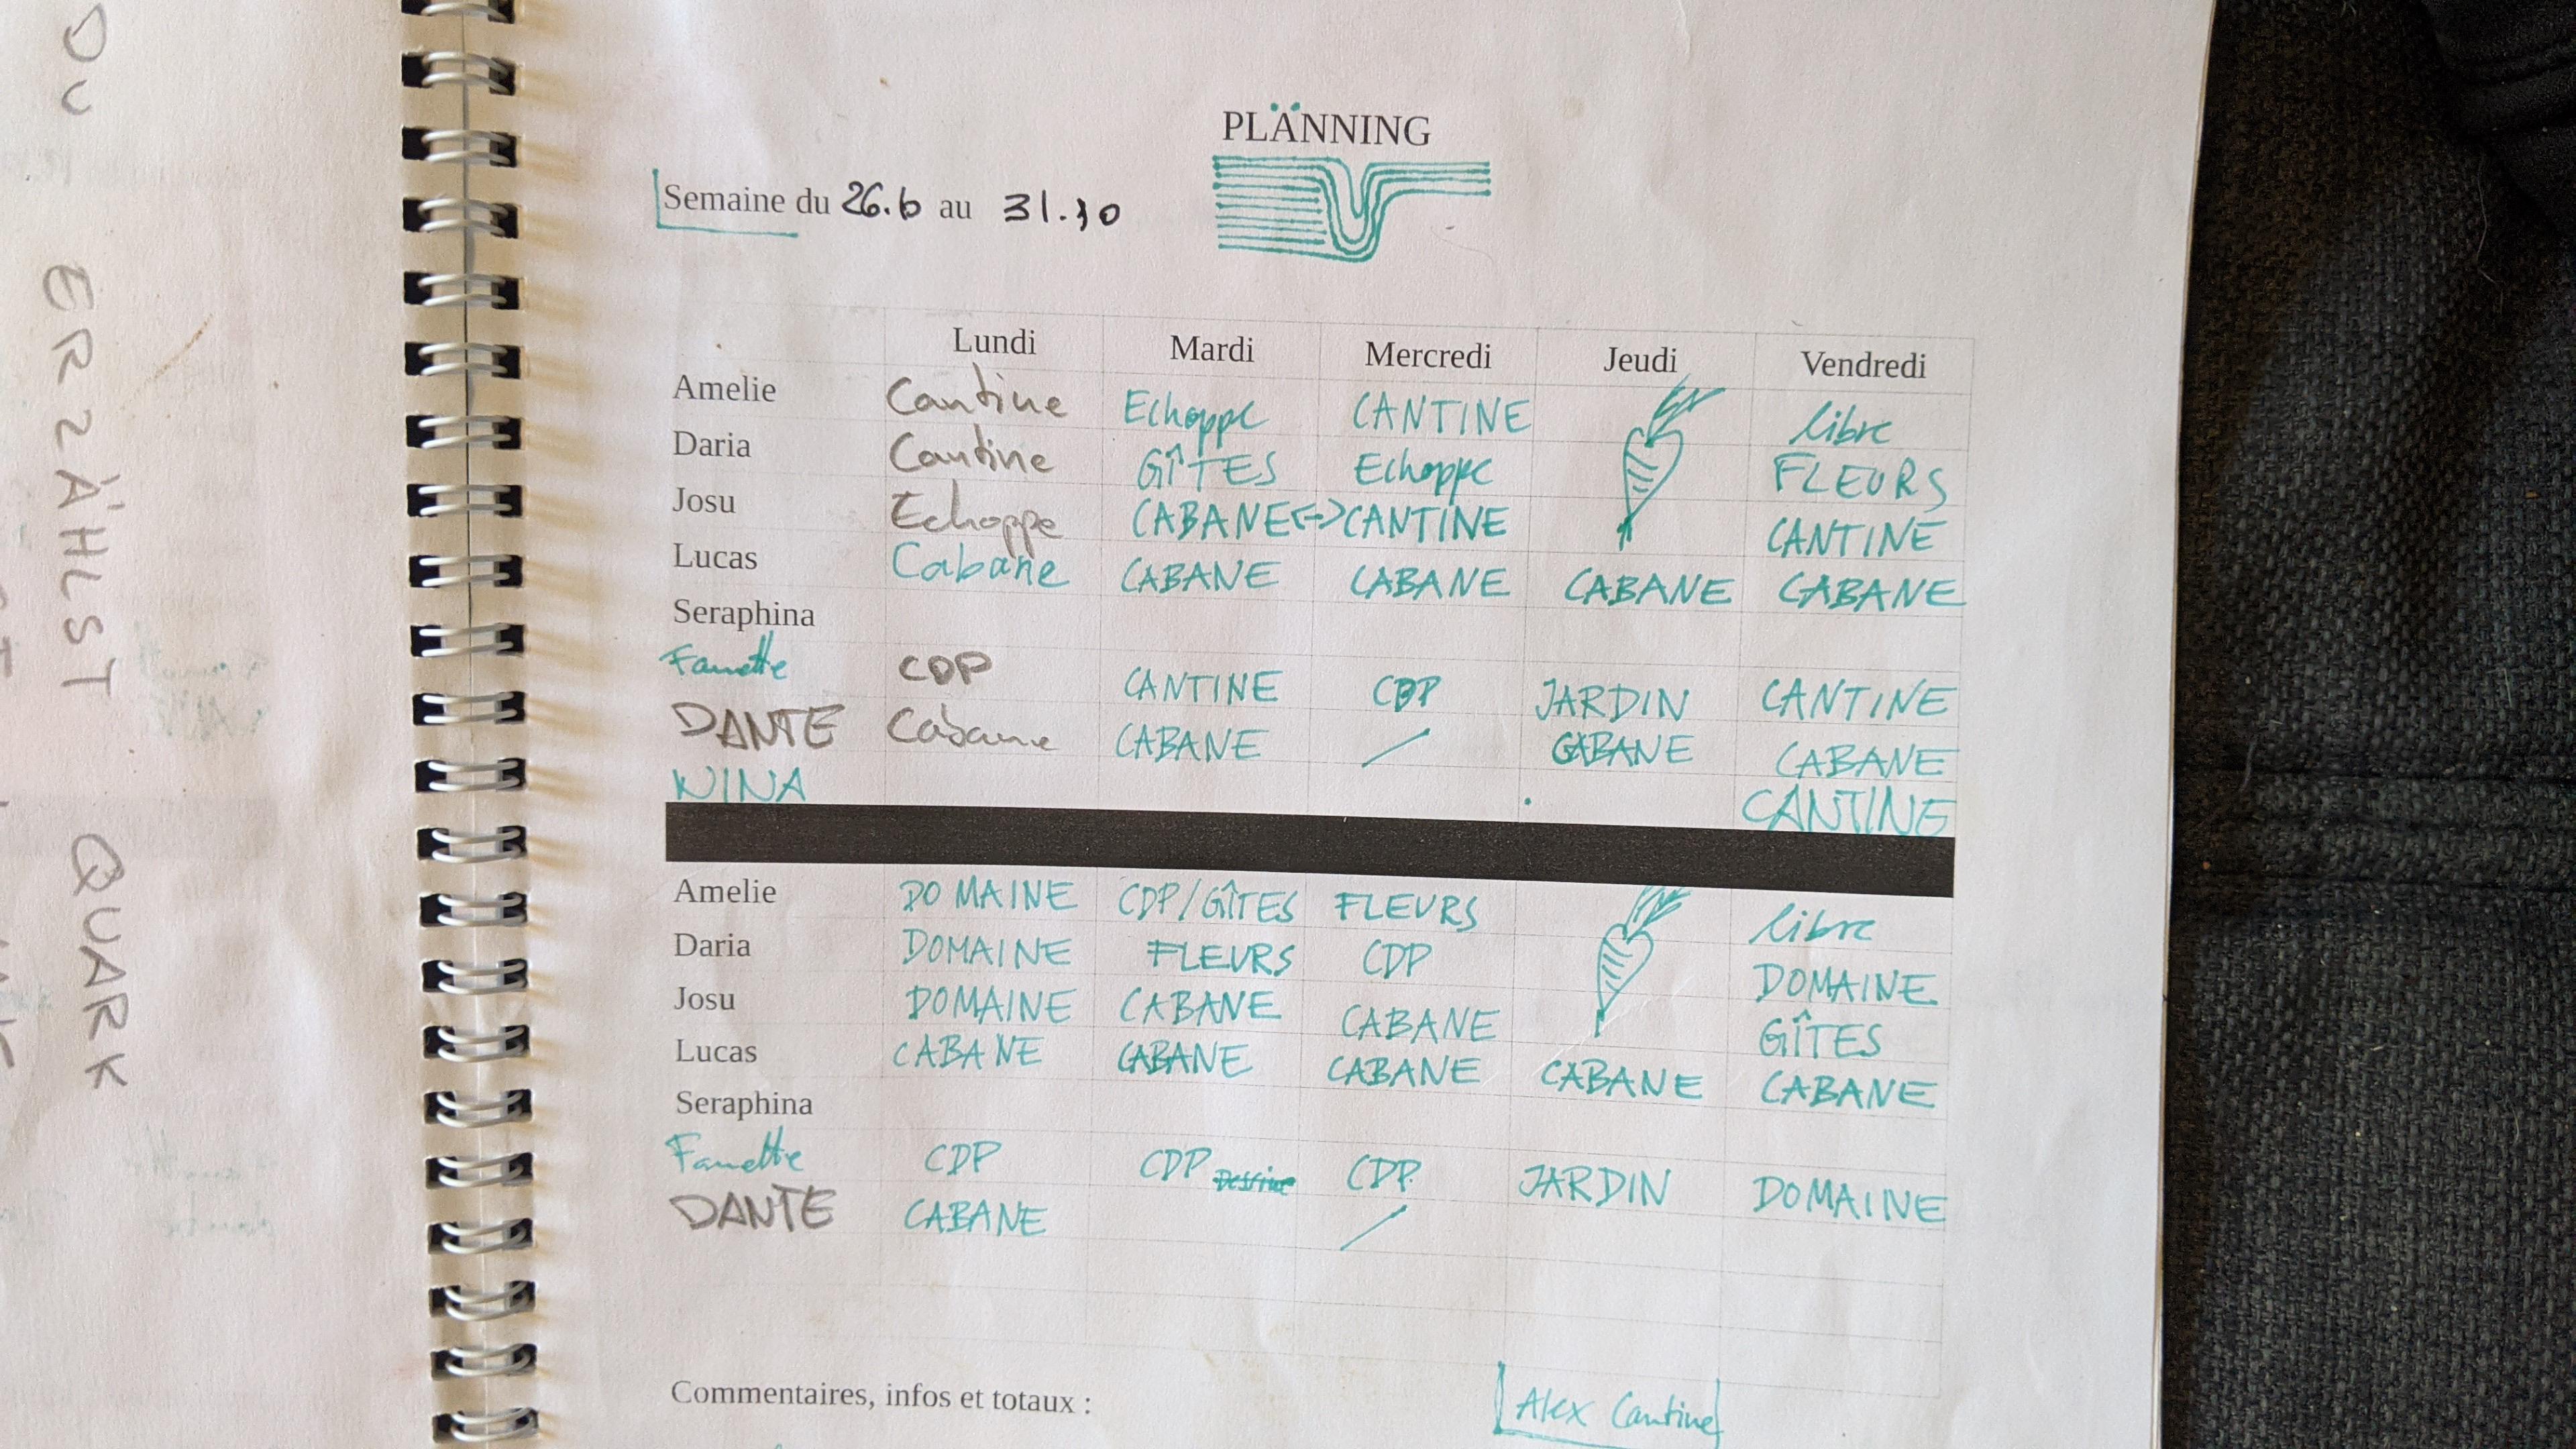 DU ERZÄHLST QUARK
PLÄNNING
Semaine du 26.10 au 31.10
Lundi Mardi Mercredi Jeudi Vendredi
Amelie Cantine Echoppe CANTINE libre
Daria Cantine GÎTES Echoppe FLEURS
Josu Echoppe CABANE <-> CANTINE CANTINE
Lucas Cabane CABANE CABANE CABANE CABANE
Seraphina
Fanette CDP CANTINE CDP JARDIN CANTINE
DANTE Cabane CABANE / CABANE CABANE
NINA CANTINE
Amelie DOMAINE CDP/GÎTES FLEURS libre
Daria DOMAINE FLEURS CDP DOMAINE
Josu DOMAINE CABANE CABANE GÎTES
Lucas CABANE CABANE CABANE CABANE CABANE
Seraphina
Fanette CDP CDP CDP JARDIN DOMAINE
DANTE CABANE /
Commentaires, infos et totaux :
Alex Cantine